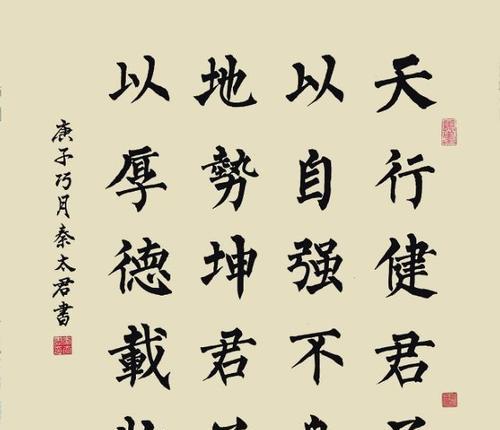 天行健君
以自强不
地勢坤君
以厚德載
庚子巧月秦太君書